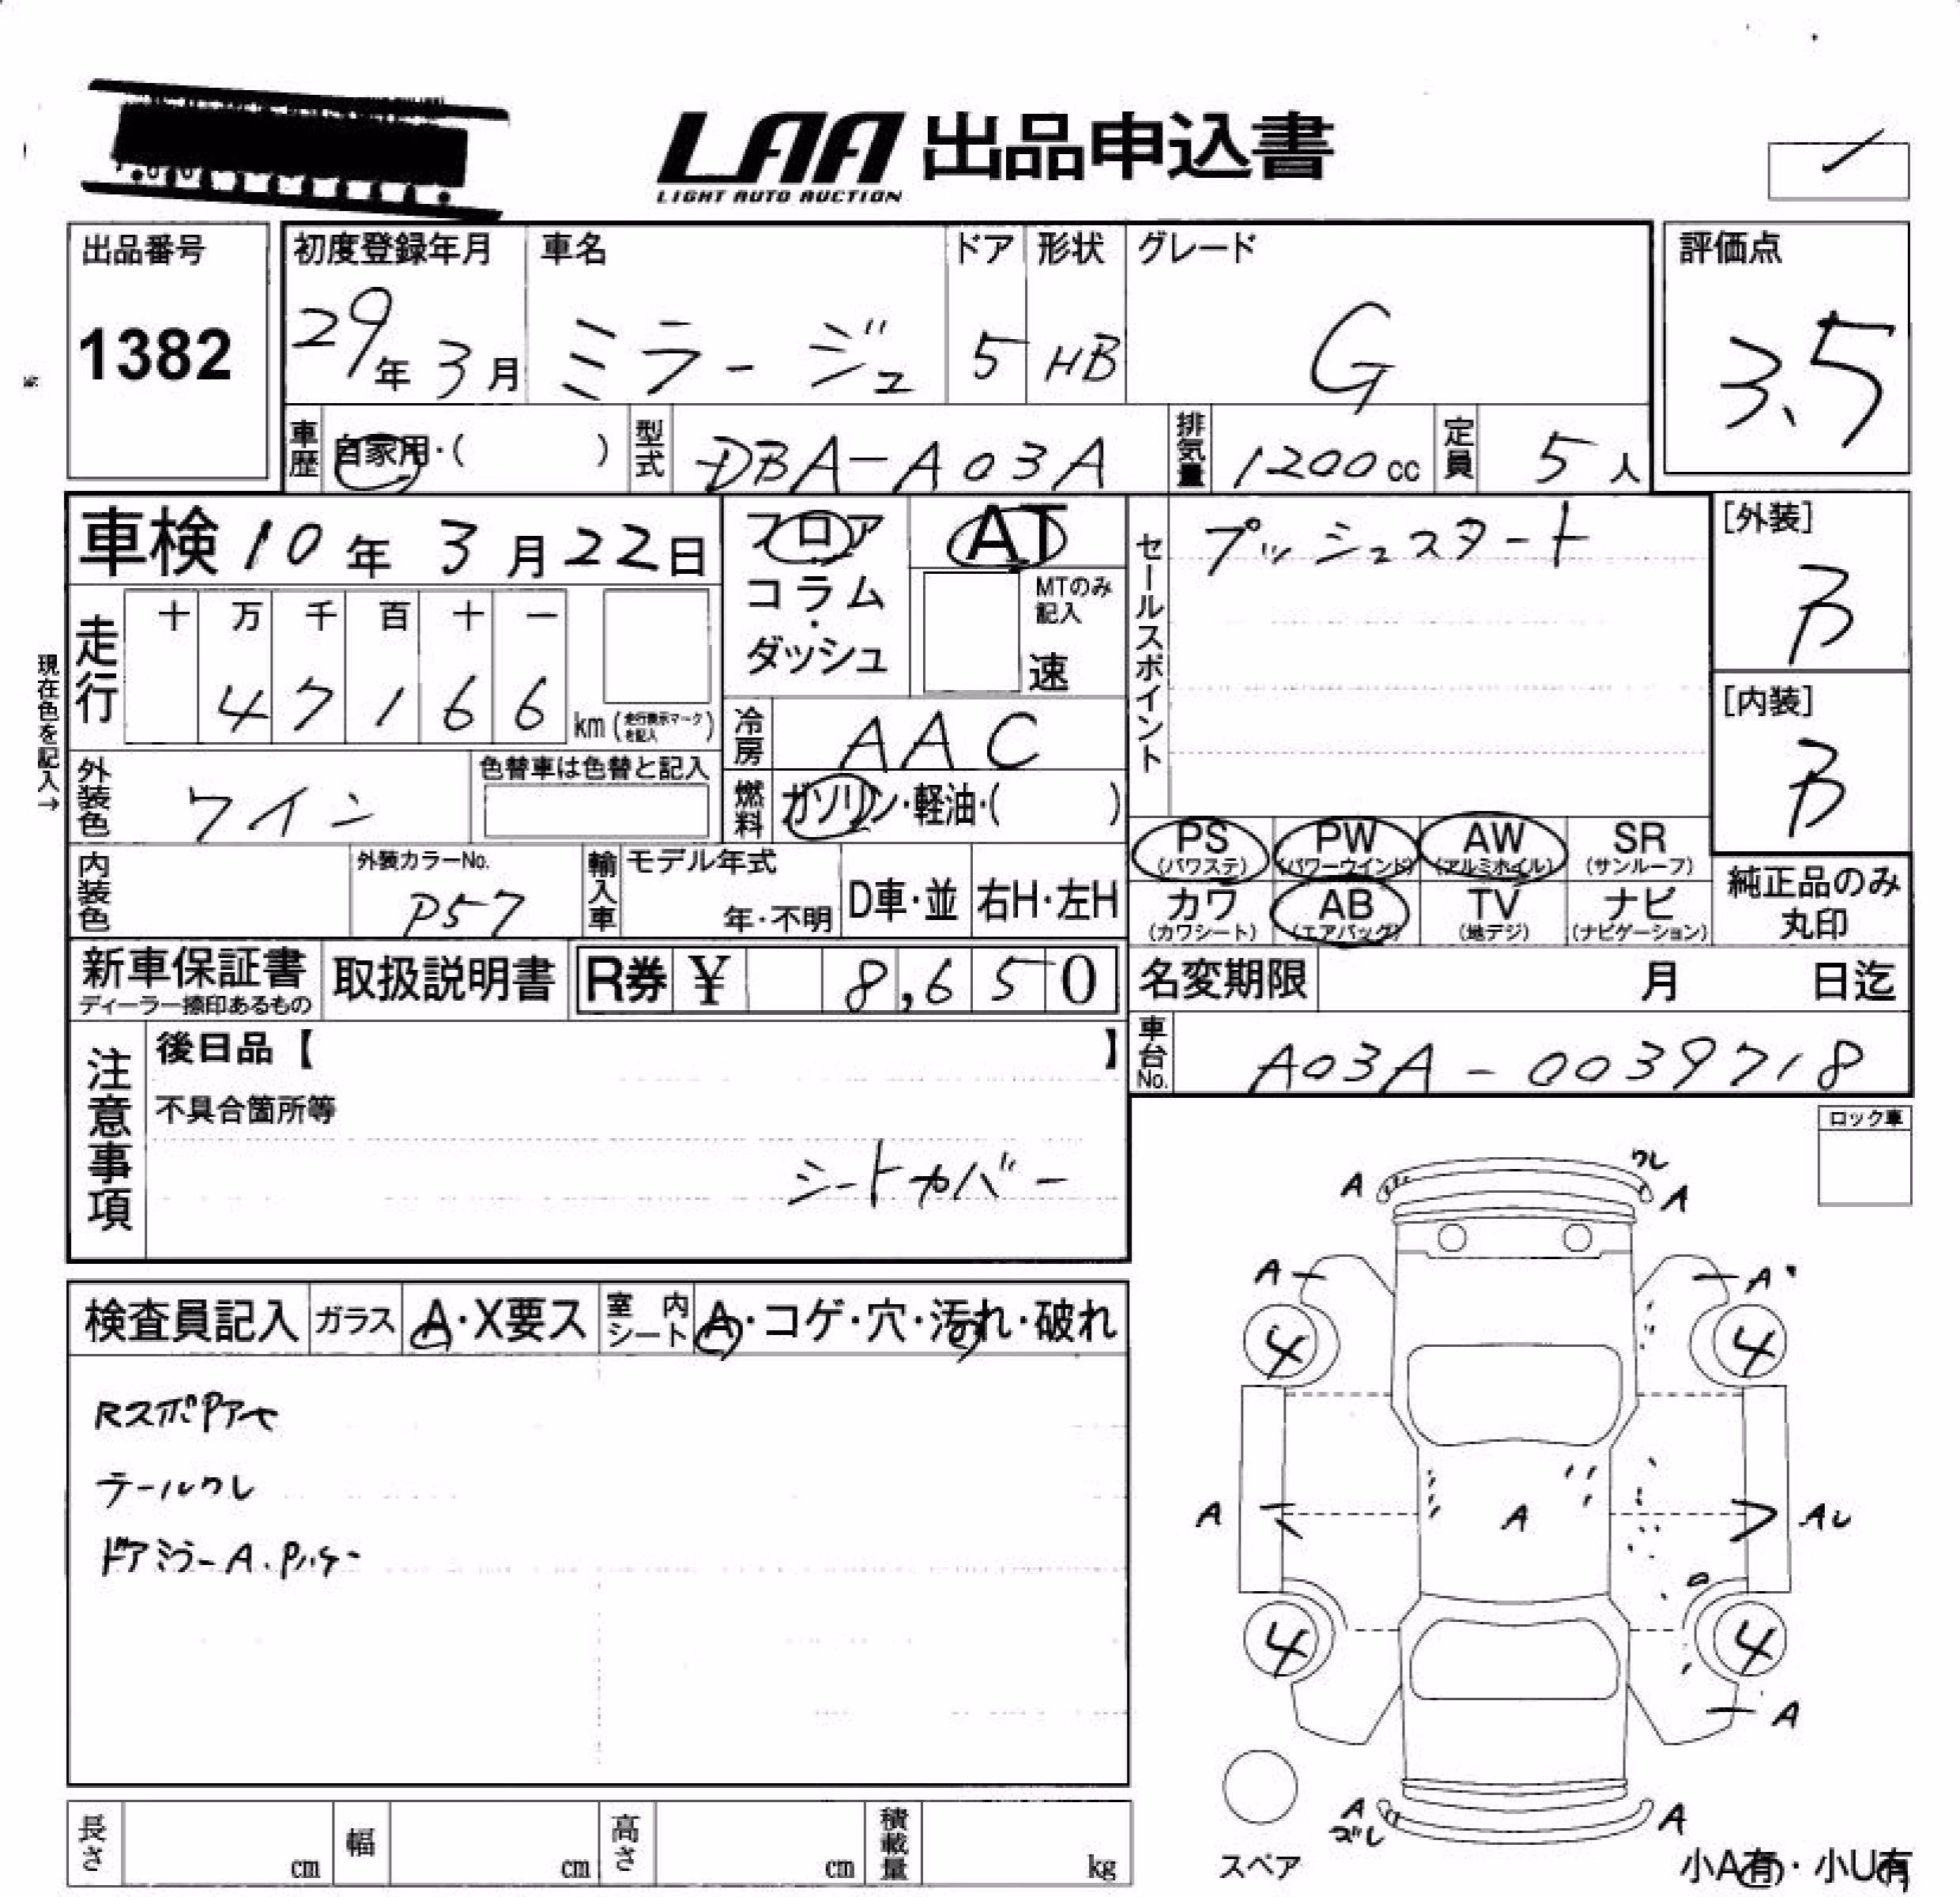 LAA 出品申込書
LIGHT AUTO AUCTION
出品番号
1382
初度登録年月
29年 3月
車名
ミラージュ
ドア
5
形状
HB
グレード
G
評価点
3.5
車歴
自家用・( )
型式
DBA-A03A
排気量
1200cc
定員
5人
車検 10年 3月 22日
フロア
コラム・
ダッシュ
AT
MTのみ
記入
速
セールスポイント
プッシュスタート
[外装]
B
[内装]
B
現在色を記入→
走行
十 万 千 百 十 一
4 7 1 6 6 km (走行表示マークを記入)
冷房
AAC
外装色
ワイン
色替車は色替と記入
燃料
ガソリン・軽油・( )
PS
(パワステ)
PW
(パワーウインド)
AW
(アルミホイル)
SR
(サンルーフ)
カワ
(カワシート)
AB
(エアバッグ)
TV
(地デジ)
ナビ
(ナビゲーション)
純正品のみ
丸印
内装色
外装カラーNo.
P57
輸入車
モデル年式
年・不明
D車・並
右H・左H
新車保証書
ディーラー捺印あるもの
取扱説明書
R券 ¥ 8,650
名変期限 月 日迄
車台No.
A03A-0039718
注意事項
後日品【 】
不具合箇所等
シートカバー
ロック車
検査員記入
ガラス
A・X要ス
室内シート
A・コゲ・穴・汚れ・破れ
テールワレ
ドアミラーA.
ワレ
A
A
A
A
4
4
A
A
A
4
4
A
A
ズレ
A
スペア
小A有・小U有
長さ
cm
幅
cm
高さ
cm
積載量
kg